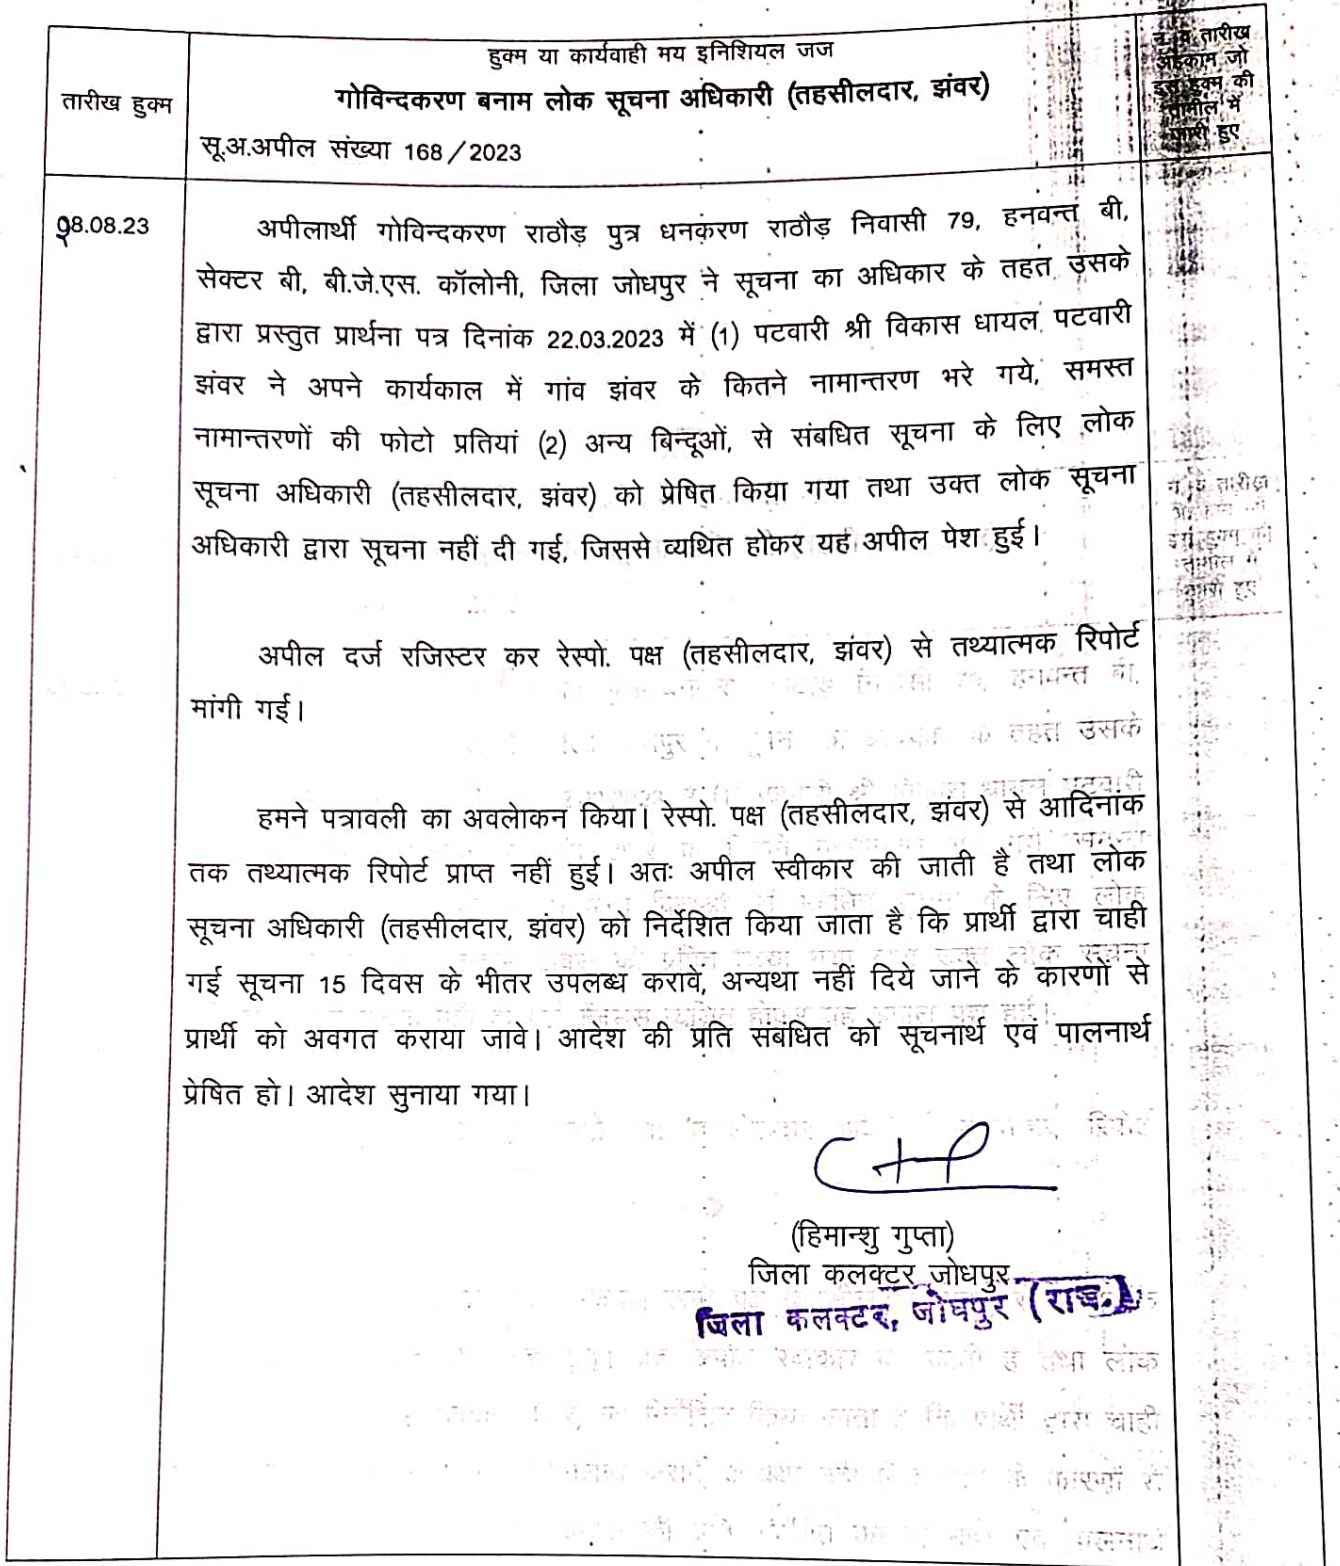 हुक्म या कार्यवाही मय इनिशियल जज
तारीख हुक्म
गोविन्दकरण बनाम लोक सूचना अधिकारी (तहसीलदार, झंवर)
सू.अ.अपील संख्या 168/2023
न. व तारीख
अहकाम जो
इस हुक्म की
तामील में
जारी हुए
08.08.23
अपीलार्थी गोविन्दकरण राठौड़ पुत्र धनकरण राठौड़ निवासी 79, हनवन्त बी,
सेक्टर बी, बी.जे.एस. कॉलोनी, जिला जोधपुर ने सूचना का अधिकार के तहत उसके
द्वारा प्रस्तुत प्रार्थना पत्र दिनांक 22.03.2023 में (1) पटवारी श्री विकास धायल पटवारी
झंवर ने अपने कार्यकाल में गांव झंवर के कितने नामान्तरण भरे गये, समस्त
नामान्तरणों की फोटो प्रतियां (2) अन्य बिन्दूओं, से संबधित सूचना के लिए लोक
सूचना अधिकारी (तहसीलदार, झंवर) को प्रेषित किया गया तथा उक्त लोक सूचना
अधिकारी द्वारा सूचना नहीं दी गई, जिससे व्यथित होकर यह अपील पेश हुई।
अपील दर्ज रजिस्टर कर रेस्पो. पक्ष (तहसीलदार, झंवर) से तथ्यात्मक रिपोर्ट
मांगी गई।
हमने पत्रावली का अवलोकन किया। रेस्पो. पक्ष (तहसीलदार, झंवर) से आदिनांक
तक तथ्यात्मक रिपोर्ट प्राप्त नहीं हुई। अतः अपील स्वीकार की जाती है तथा लोक
सूचना अधिकारी (तहसीलदार, झंवर) को निर्देशित किया जाता है कि प्रार्थी द्वारा चाही
गई सूचना 15 दिवस के भीतर उपलब्ध करावे, अन्यथा नहीं दिये जाने के कारणों से
प्रार्थी को अवगत कराया जावे। आदेश की प्रति संबंधित को सूचनार्थ एवं पालनार्थ
प्रेषित हो। आदेश सुनाया गया।
(हिमान्शु गुप्ता)
जिला कलक्टर जोधपुर
जिला कलक्टर, जोधपुर (राज.)